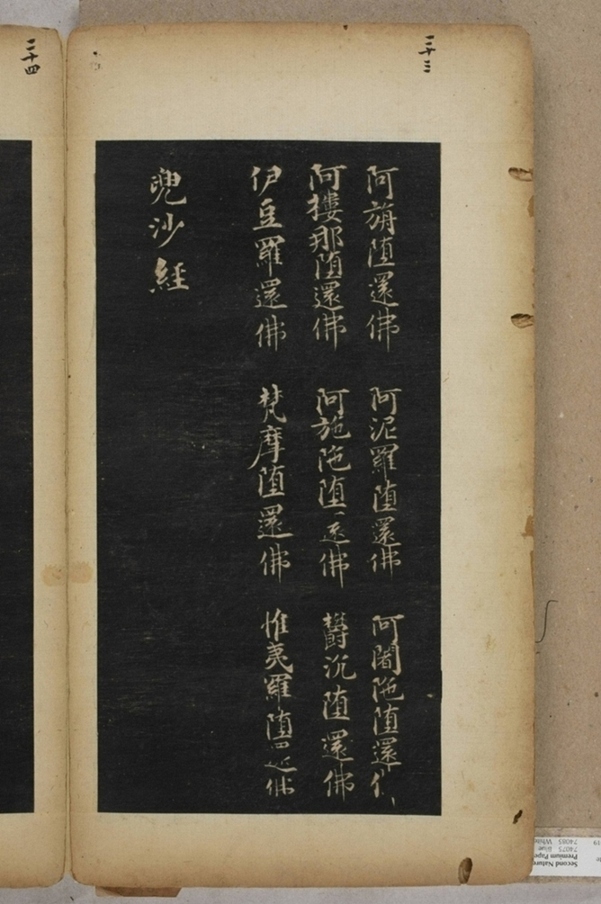 二十三
阿旃堕還佛 阿泥羅堕還佛 阿闍陁堕還佛
阿搂那堕還佛 阿施陁堕還佛 欝沉堕還佛
伊亘羅還佛 梵摩堕還佛 惟夷羅堕還佛
兜沙経
二十四
Second Nature
Premium Pape
74075 Blue
74085 White